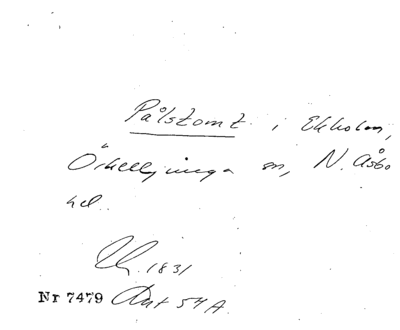 Pålstomt i Ekholm,
Örkelljunga sn, N. Åsbo
hd.
1831
Nr 7479 Akt 54 A